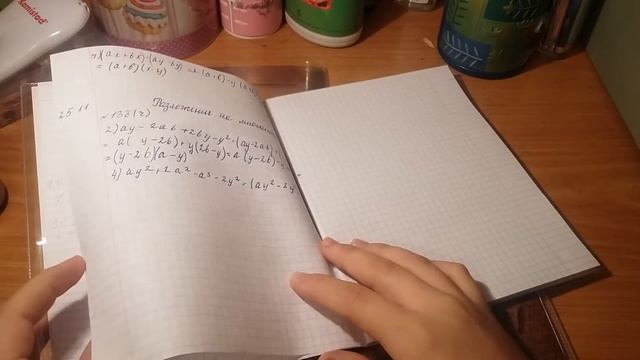 Kanistad
4) (ax+bx)-(ay+by)=x(a+b)-y(a+b)
=(a+b)(x-y)
25.11
Разложение на множители
2) ay-2ab+2by-y²=(ay-2ab)
=a(y-2b)+y(2b-y)=a(y-2b)-
=(y-2b)(a-y)
4) ay²+2a²-a³-2y²=(ay²-2y